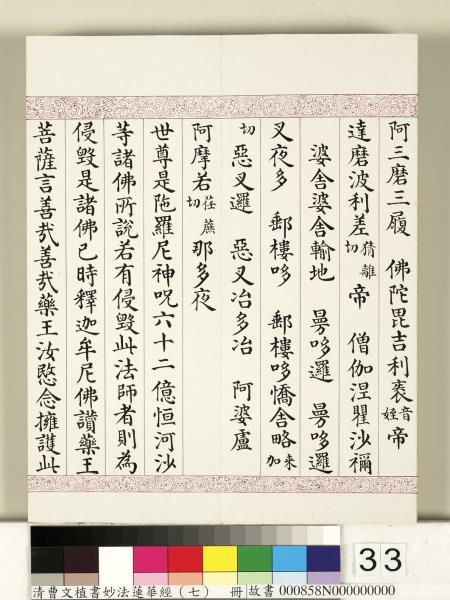 阿三磨三履 佛陀毘吉利袠音姪帝
達磨波利差猜離切帝 僧伽涅瞿沙禰
婆舍婆舍輸地 曼哆邏 曼哆邏
叉夜多 郵樓哆 郵樓哆憍舍略來加
切 惡叉邏 惡叉冶多冶 阿婆盧
阿摩若荏蔗切那多夜
世尊是陁羅尼神呪六十二億恒河沙
等諸佛所說若有侵毀此法師者則為
侵毀是諸佛已時釋迦牟尼佛讚藥王
菩薩言善哉善哉藥王汝愍念擁護此
33
清曹文植書妙法蓮華經(七) 冊 故書 000858N000000000